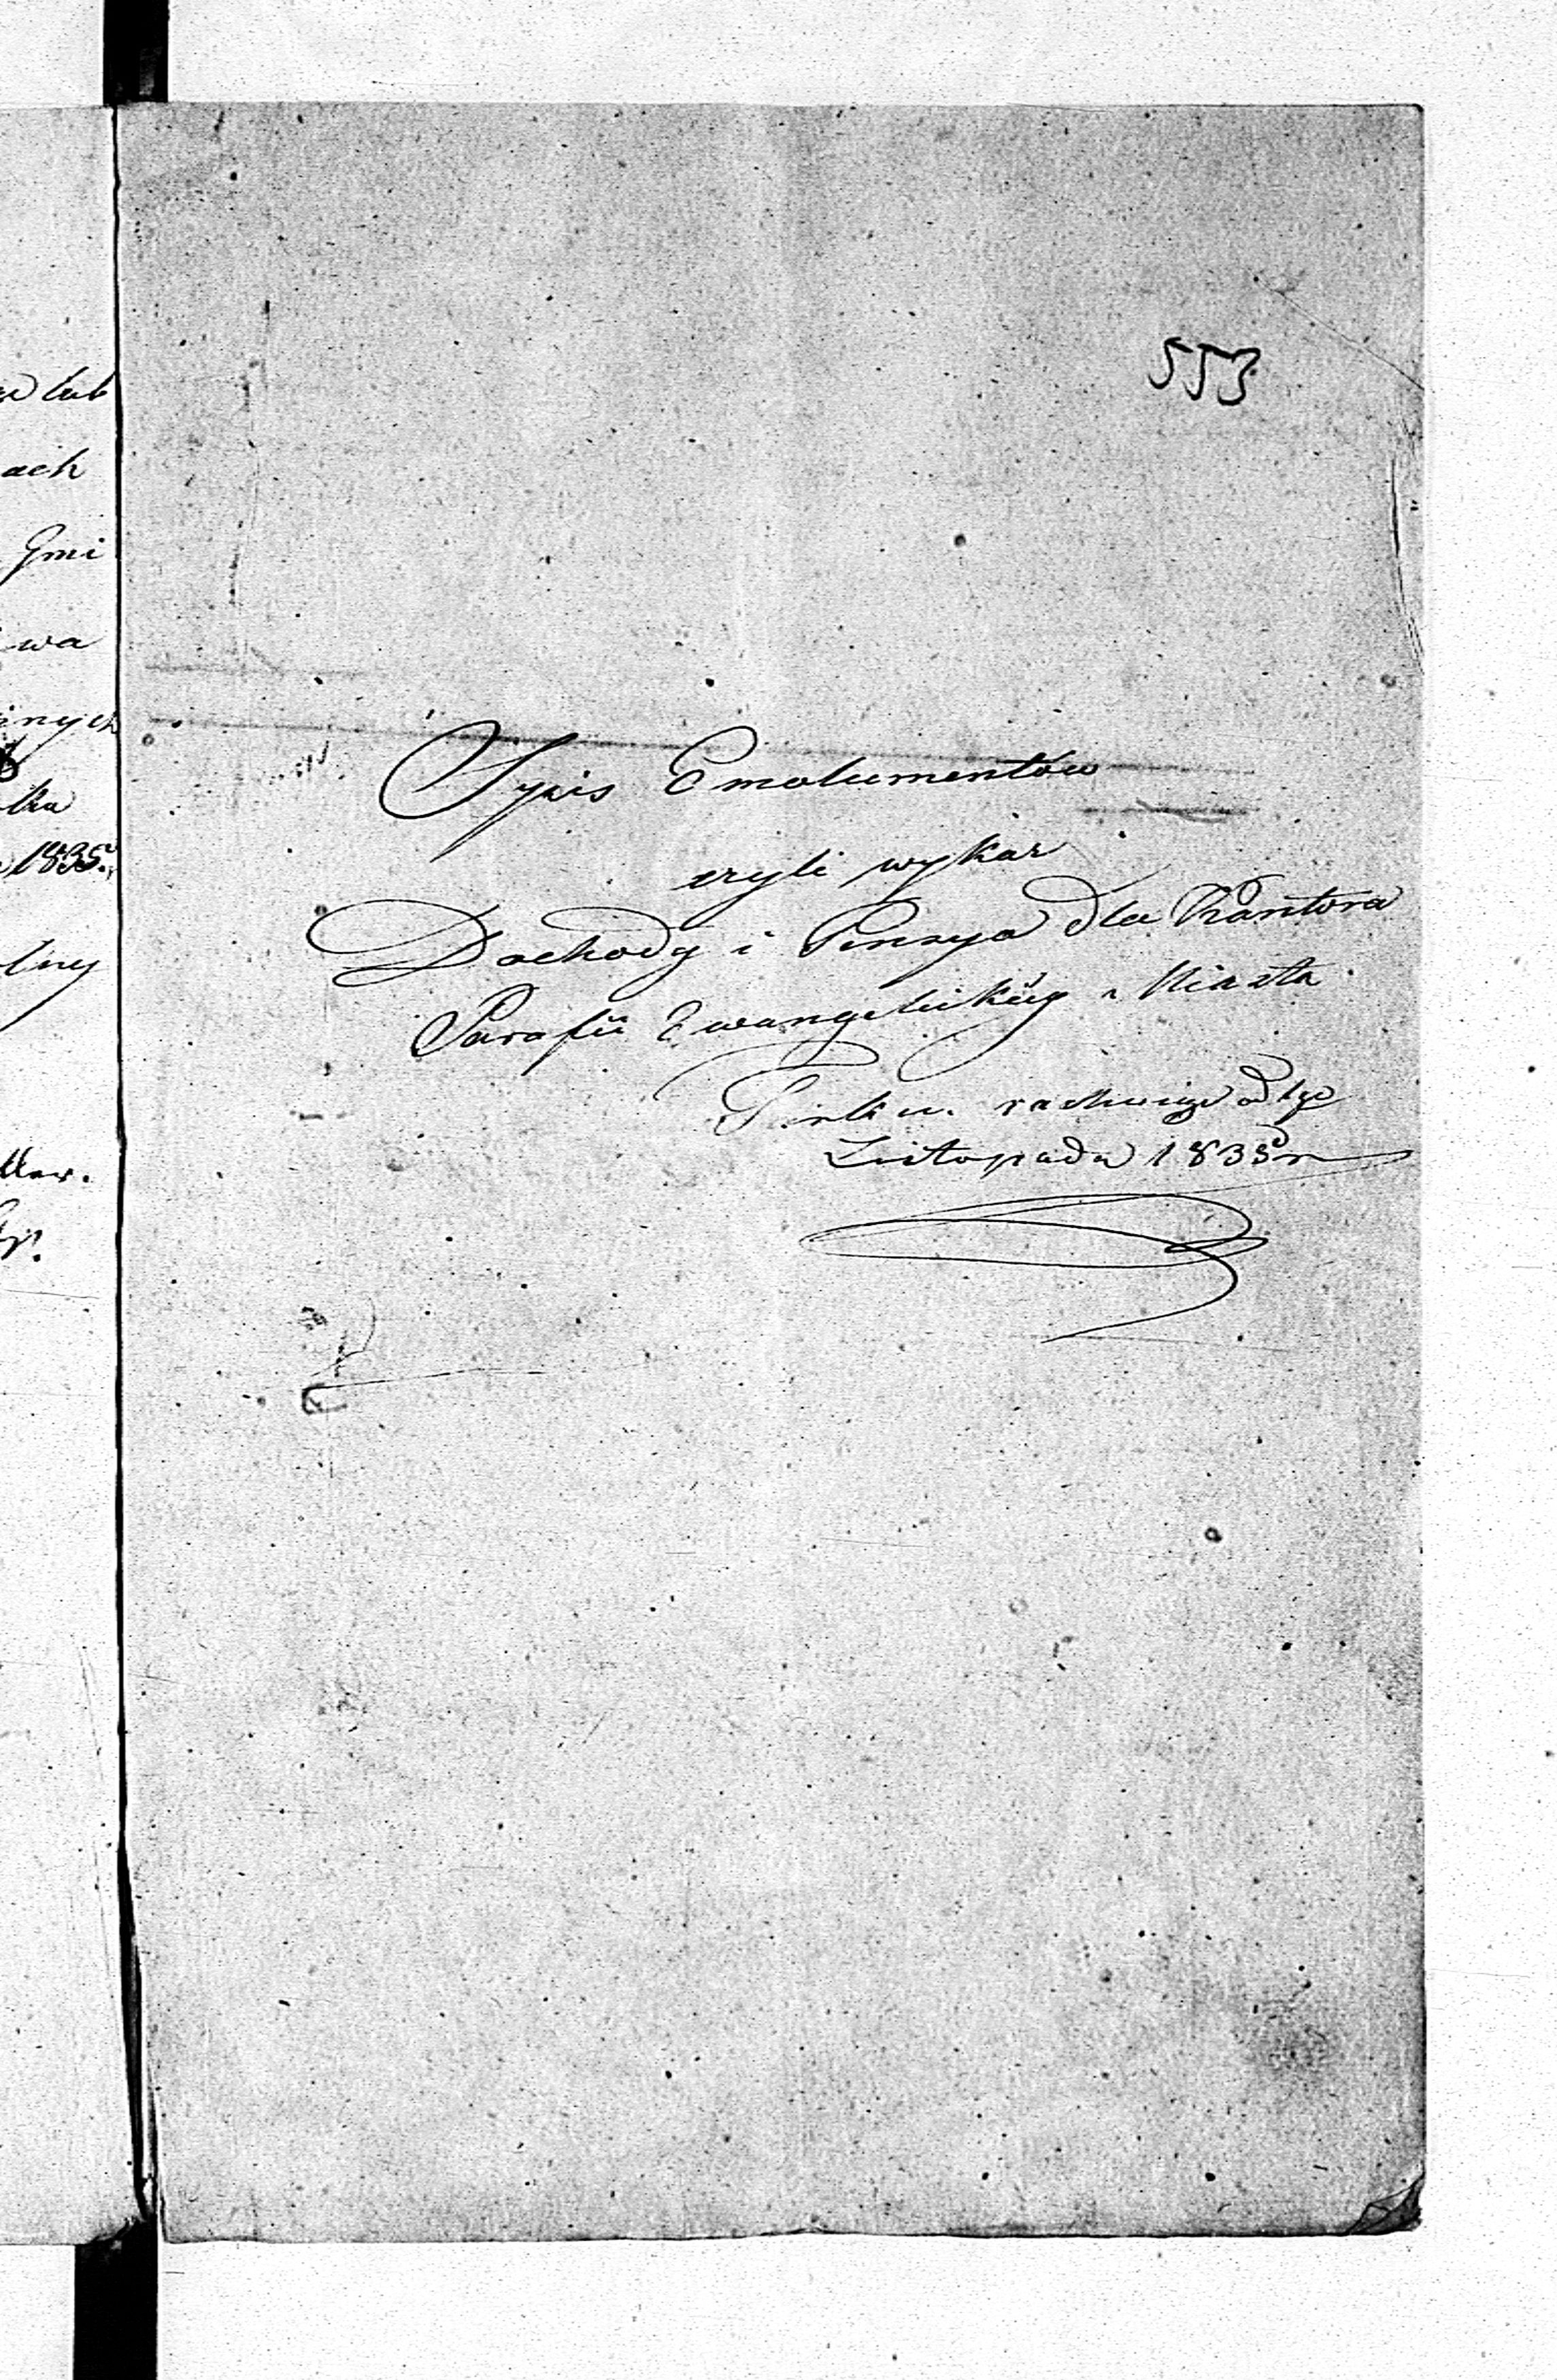 w lub
ach
Gmi
wa
innych
1835.
lny
553
Spis Emolumentów
czyli wykaz
Dochody i Pensya dla Kantora
Parafii Ewangelickiey z Miasta
rachuiąc od 1go
Listopada 1835 r